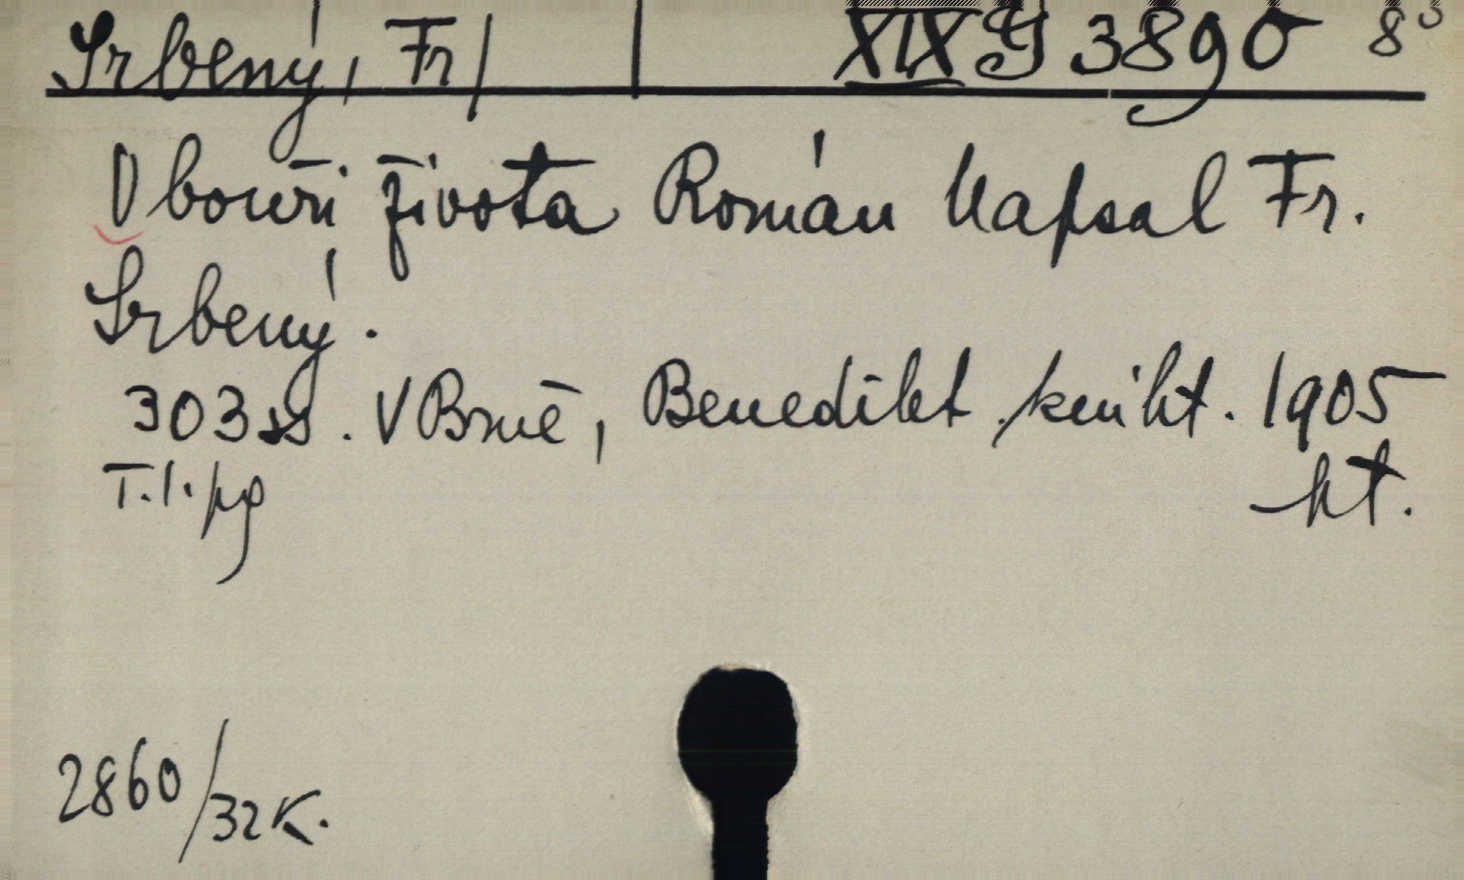 Srbený, Fr/ XIX G 3890 8°
V bouři života Román Napsal Fr.
Srbený.
303 ss. V Brně, Benedikt, kniht. 1905
T. l. pg kt.
2860/32 K.